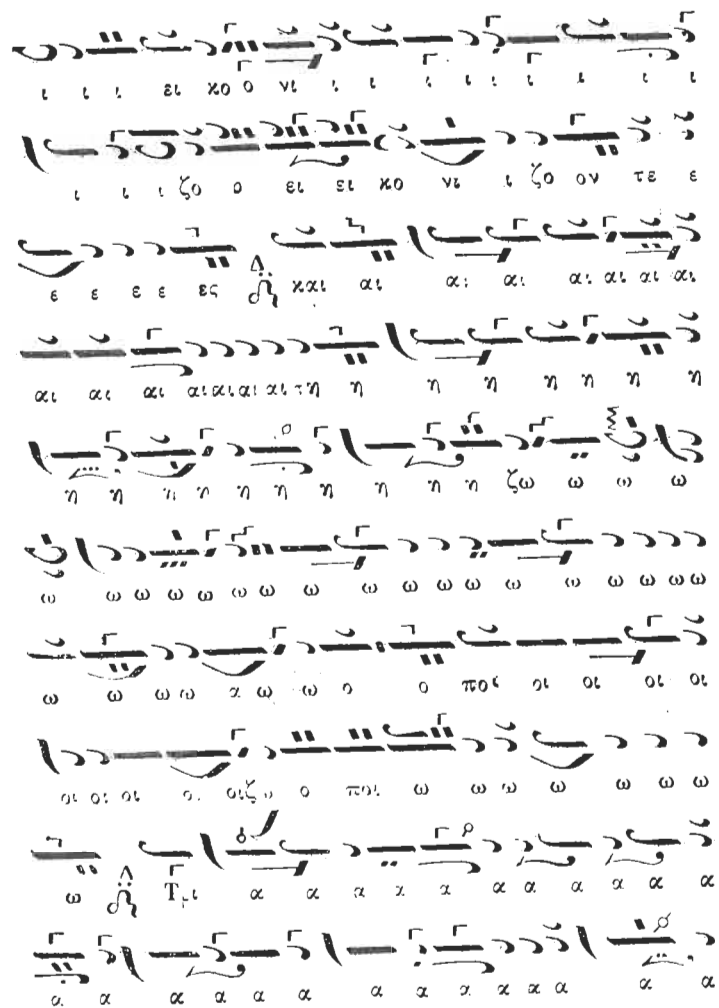 ι ι ι ει κο ο νι ι ι ι ι ι ι ι ι ι
ι ι ι ζο ο ει ει κο νι ι ζο ον τε ε
ε ε ε ε ες Δ και αι αι αι αι αι αι αι
αι αι αι αι αι αι αι τη η η η η η η η
η η η η η η η η η η ζω ω ω ω
ω ω ω ω ω ω ω ω ω ω ω ω ω ω ω ω ω
ω ω ω ω α ω ω ο ο ποι οι οι οι οι
οι οι οι οι οι ζω ο ποι ω ω ω ω ω ω ω
ω Δ Τρι α α α α α α α α α α
α α α α α α α α α α α α α α